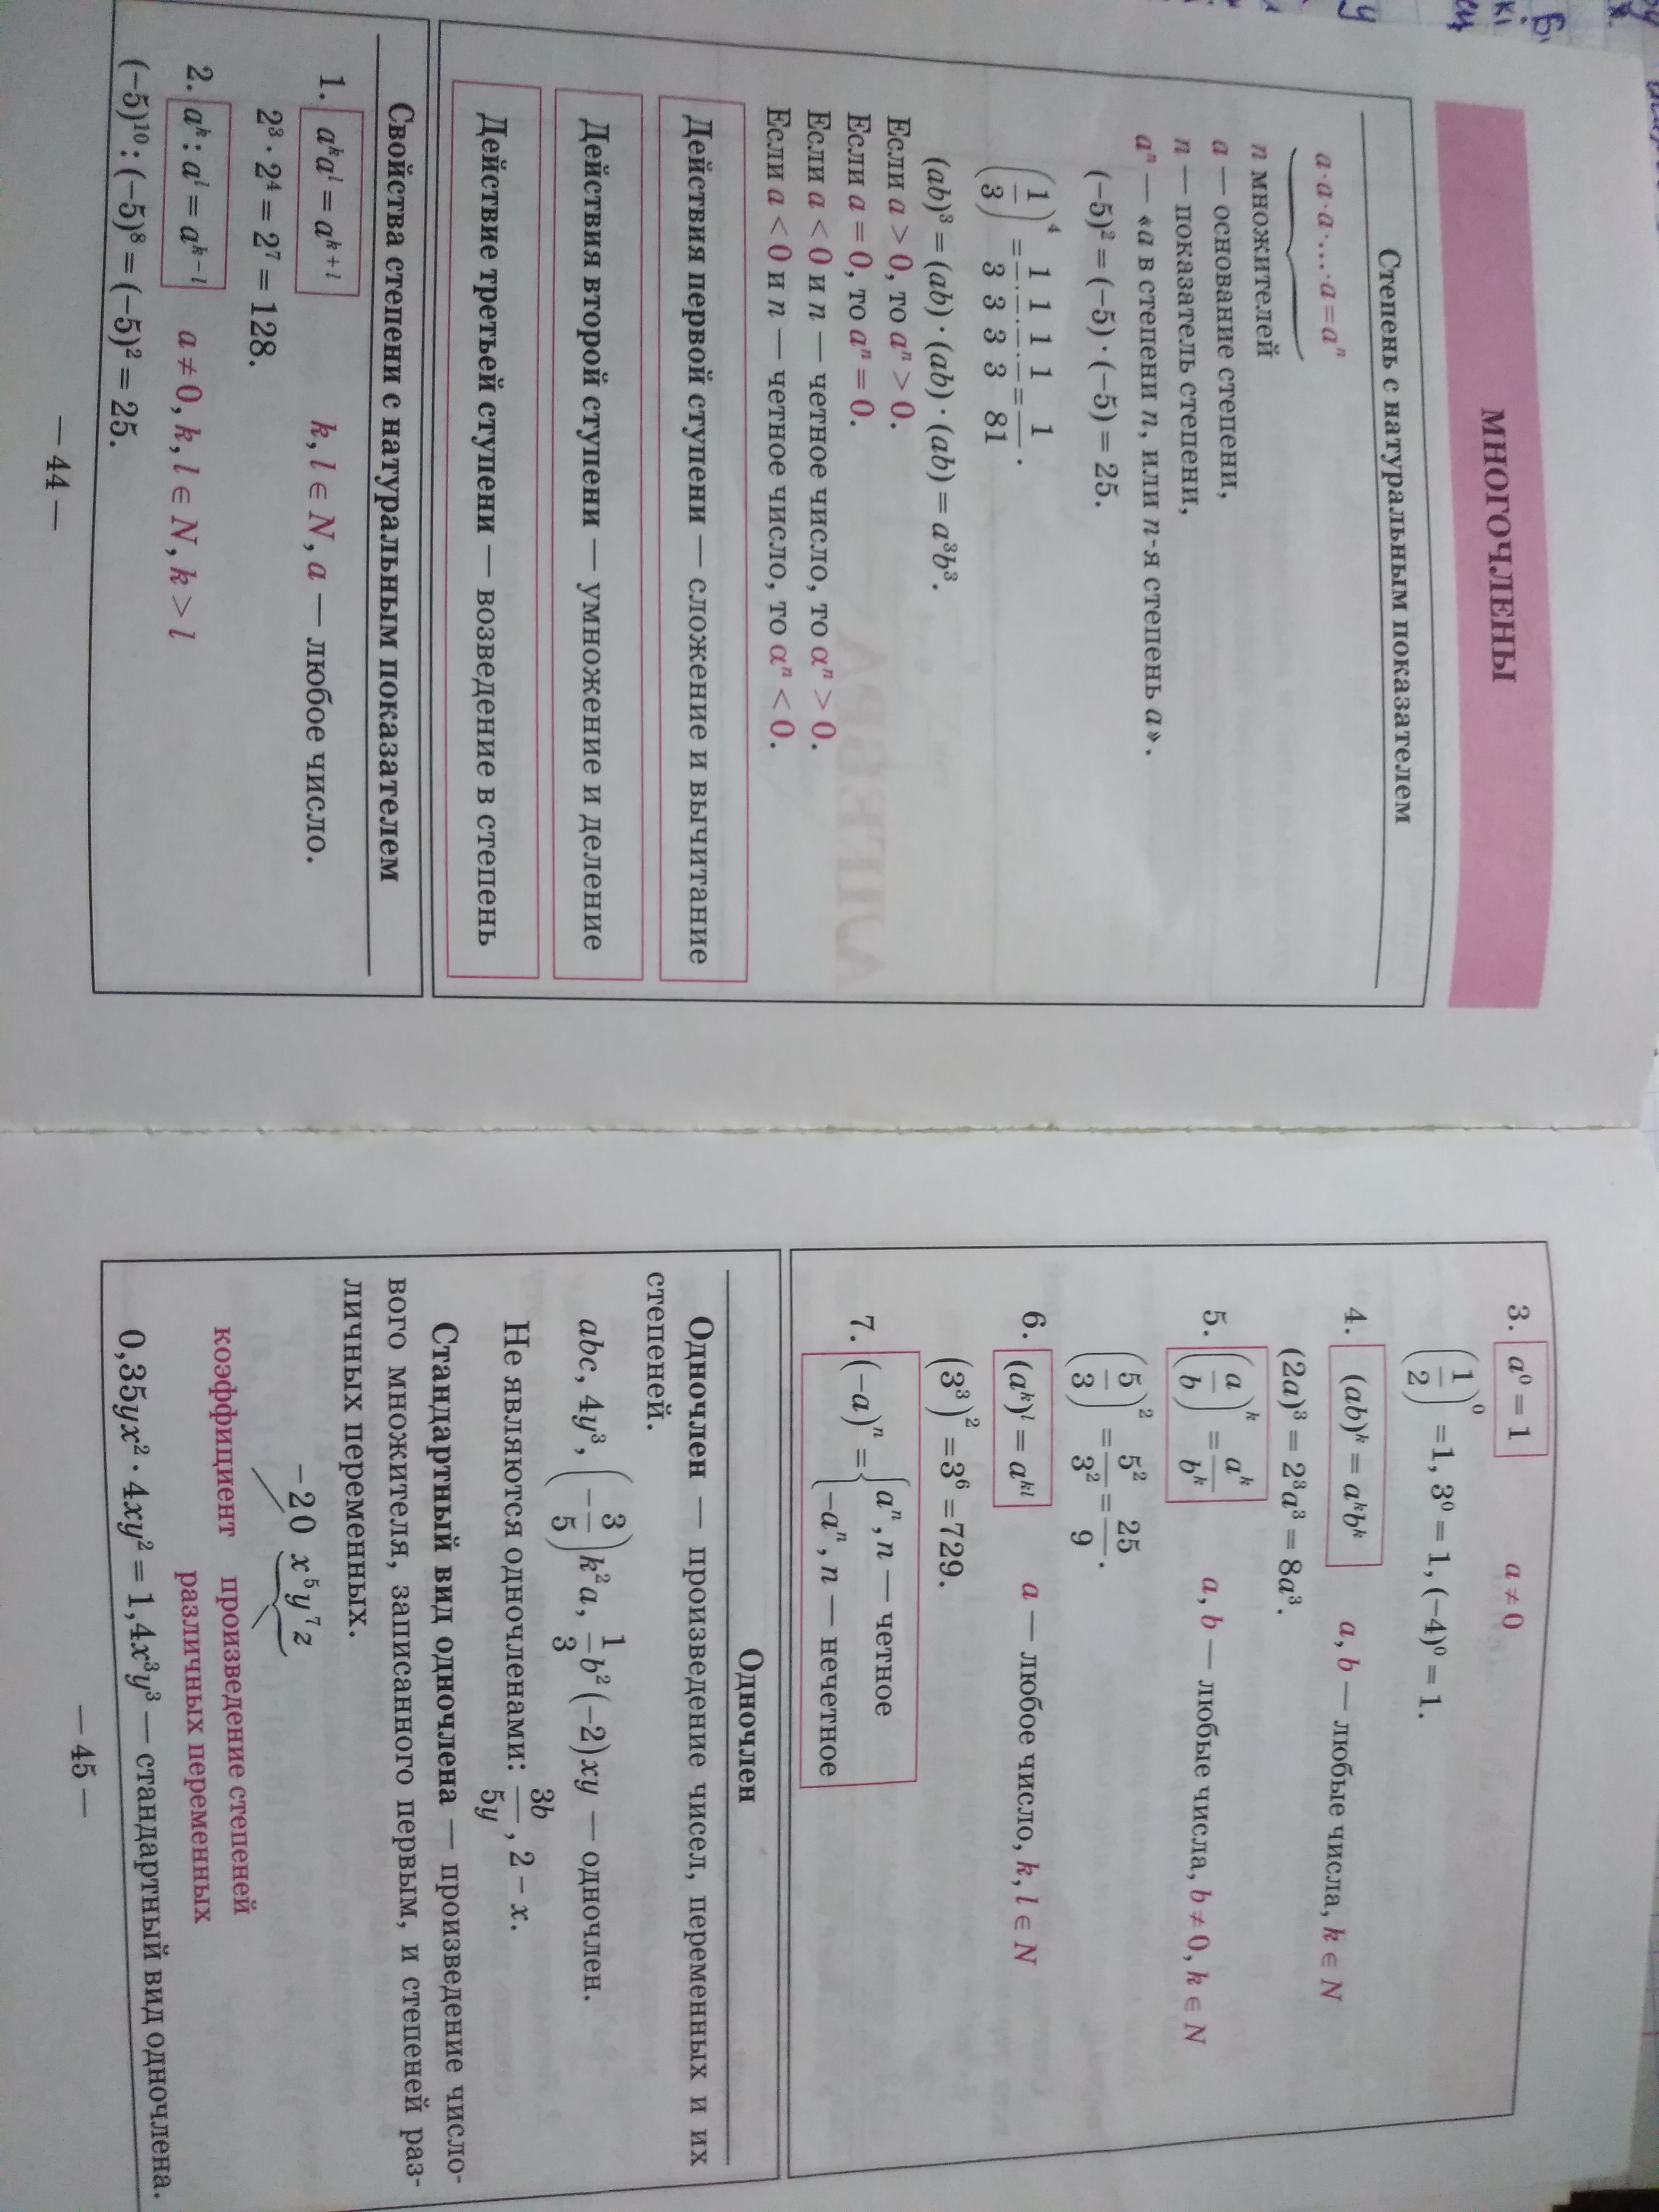 МНОГОЧЛЕНЫ
Степень с натуральным показателем
a·a·a·...·a=aⁿ
n множителей
a — основание степени,
n — показатель степени,
aⁿ — «a в степени n, или n-я степень a».
(−5)² = (−5) · (−5) = 25.
(1/3)⁴ = 1/3 · 1/3 · 1/3 · 1/3 = 1/81.
(ab)³ = (ab) · (ab) · (ab) = a³b³.
Если a > 0, то aⁿ > 0.
Если a = 0, то aⁿ = 0.
Если a < 0 и n — четное число, то αⁿ > 0.
Если a < 0 и n — четное число, то αⁿ < 0.
Действия первой ступени — сложение и вычитание
Действия второй ступени — умножение и деление
Действие третьей ступени — возведение в степень
Свойства степени с натуральным показателем
1. aᵏaˡ = aᵏ⁺ˡ k, l ∈ N, a — любое число.
2³ · 2⁴ = 2⁷ = 128.
2. aᵏ : aˡ = aᵏ⁻ˡ a ≠ 0, k, l ∈ N, k > l
(−5)¹⁰ : (−5)⁸ = (−5)² = 25.
— 44 —
3. a⁰ = 1 a ≠ 0
(1/2)⁰ = 1, 3⁰ = 1, (−4)⁰ = 1.
4. (ab)ᵏ = aᵏbᵏ a, b — любые числа, k ∈ N
(2a)³ = 2³a³ = 8a³.
5. (a/b)ᵏ = aᵏ/bᵏ a, b — любые числа, b ≠ 0, k ∈ N
(5/3)² = 5²/3² = 25/9.
6. (aᵏ)ˡ = aᵏˡ a — любое число, k, l ∈ N
(3³)² = 3⁶ = 729.
7. (−a)ⁿ = { aⁿ, n — четное
−aⁿ, n — нечетное
Одночлен
Одночлен — произведение чисел, переменных и их
степеней.
abc, 4y³, (−3/5)k²a, 1/3 b²(−2)xy — одночлен.
Не являются одночленами: 3b/5y, 2 − x.
Стандартный вид одночлена — произведение число-
вого множителя, записанного первым, и степеней раз-
личных переменных.
−20 x⁵y⁷z
коэффициент произведение степеней
различных переменных
0,35yx² · 4xy² = 1,4x³y³ — стандартный вид одночлена.
— 45 —